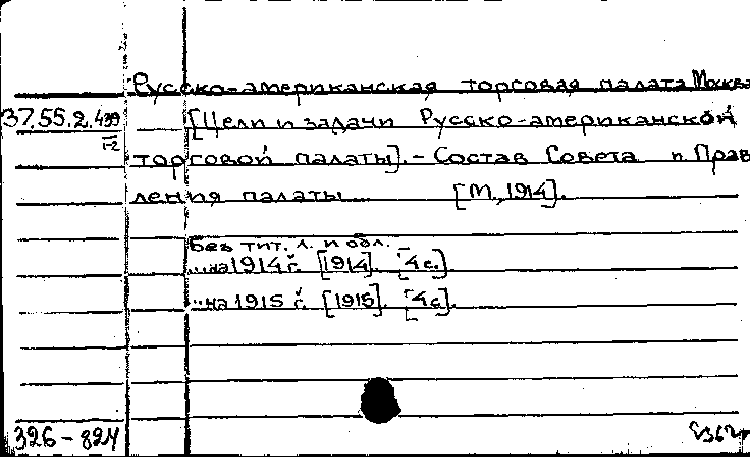 Русско-американская торговая палата Москва
37.55.2.499
[Цели и задачи Русско-американской
1-2
торговой палаты]. - Состав Совета и Прав
ления палаты [М., 1914].
Без тит. л. и обл.
...на 1914 г. [1914]. [4 с].
...на 1915 г. [1915]. [4 с].
326-824